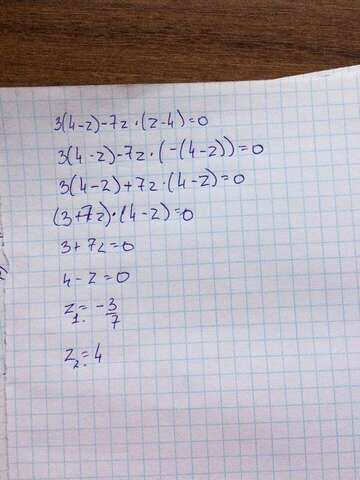 3(4-z)-7z·(z-4)=0
3(4-z)-7z·(-(4-z))=0
3(4-z)+7z·(4-z)=0
(3+7z)·(4-z)=0
3+7z=0
4-z=0
z₁=-3/7
z₂=4